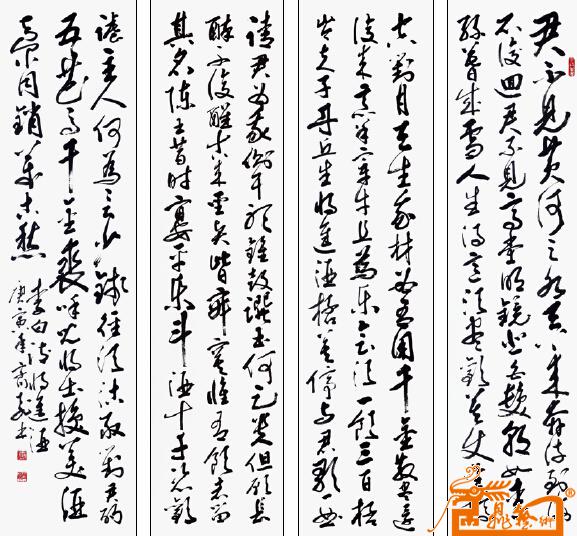 君不见黄河之水天上来奔流到海
不復回君不见高堂明镜悲白髮朝如青
絲暮成雪人生得意须尽歡莫使金樽
空對月天生我材必有用千金散尽還
復来烹羊宰牛且為乐会须一饮三百杯
岑夫子丹丘生将進酒杯莫停与君歌一曲
請君為我側耳听鐘鼓饌玉何足贵但愿長
醉不復醒古来聖賢皆寂寞惟有饮者留
其名陳王昔時宴平乐斗酒十千恣歡
謔主人何為言少錢径须沽取對君酌
五花马千金裘呼兒将出换美酒
与尔同銷万古愁
李白诗将進酒
庚寅年